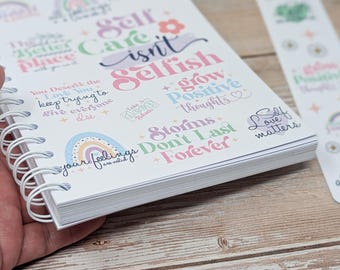 Self
Care
isn't
Selfish
Better
Place
with you in it
You Deserve the
Love you
keep trying to
give everyone
else
grow
Positive
thoughts
Storms
Don't Last
Forever
your feelings
are valid
Self
Love
matters
grow
Positive
thoughts